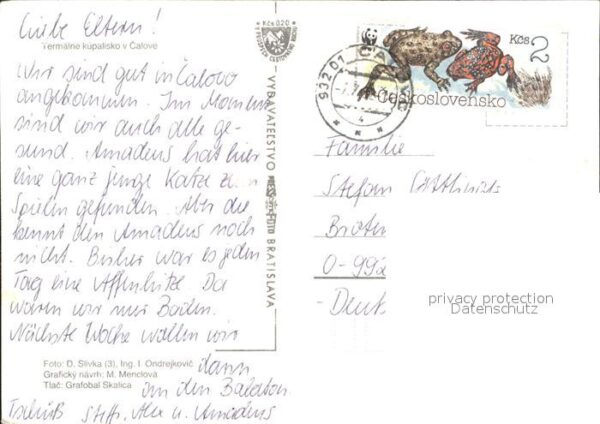 Liebe Eltern!
Termálne kúpalisko v Čalove
Wir sind gut in Čalovo
angekommen. Im Moment
sind wir auch alle ge-
sund. Amadeus hat hier
eine ganz junge Katze zum
Spielen gefunden. Aber die
kennt den Amadeus noch
nicht. Bisher war es jeden
Tag eine Affenhitze. Da
waren wir nur Baden.
Nächste Woche wollen wir
dann
an den Balaton.
Tschüß Steff., Alex u. Amadeus
Foto: D. Slivka (3), Ing. I. Ondrejkovič
Grafický návrh: M. Menclová
Tlač: Grafobal Skalica
Kčs 0,20
VYDAVATEĽSTVO
BRATISLAVA
932 01
Kčs 2
Československo
Familie
Stefan
privacy protection
Datenschutz